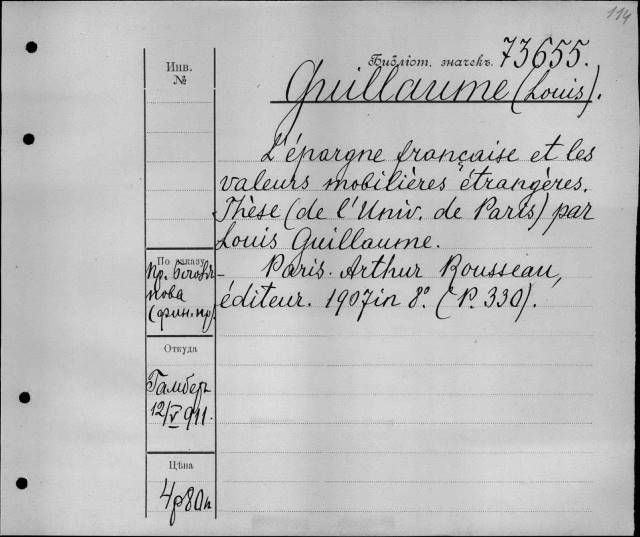 114
Библіот. значекъ 73655.
Инв.
№
Guillaume (Louis).
L'épargne française et les
valeurs mobilières étrangères.
Thèse (de l'Univ. de Paris) par
Louis Guillaume.
Paris. Arthur Rousseau,
éditeur. 1907 in 8° (P. 330).
По заказу
пр.
нова
(фин. пр)
Откуда
Гамберъ
12/V 911.
Цѣна
4р80к